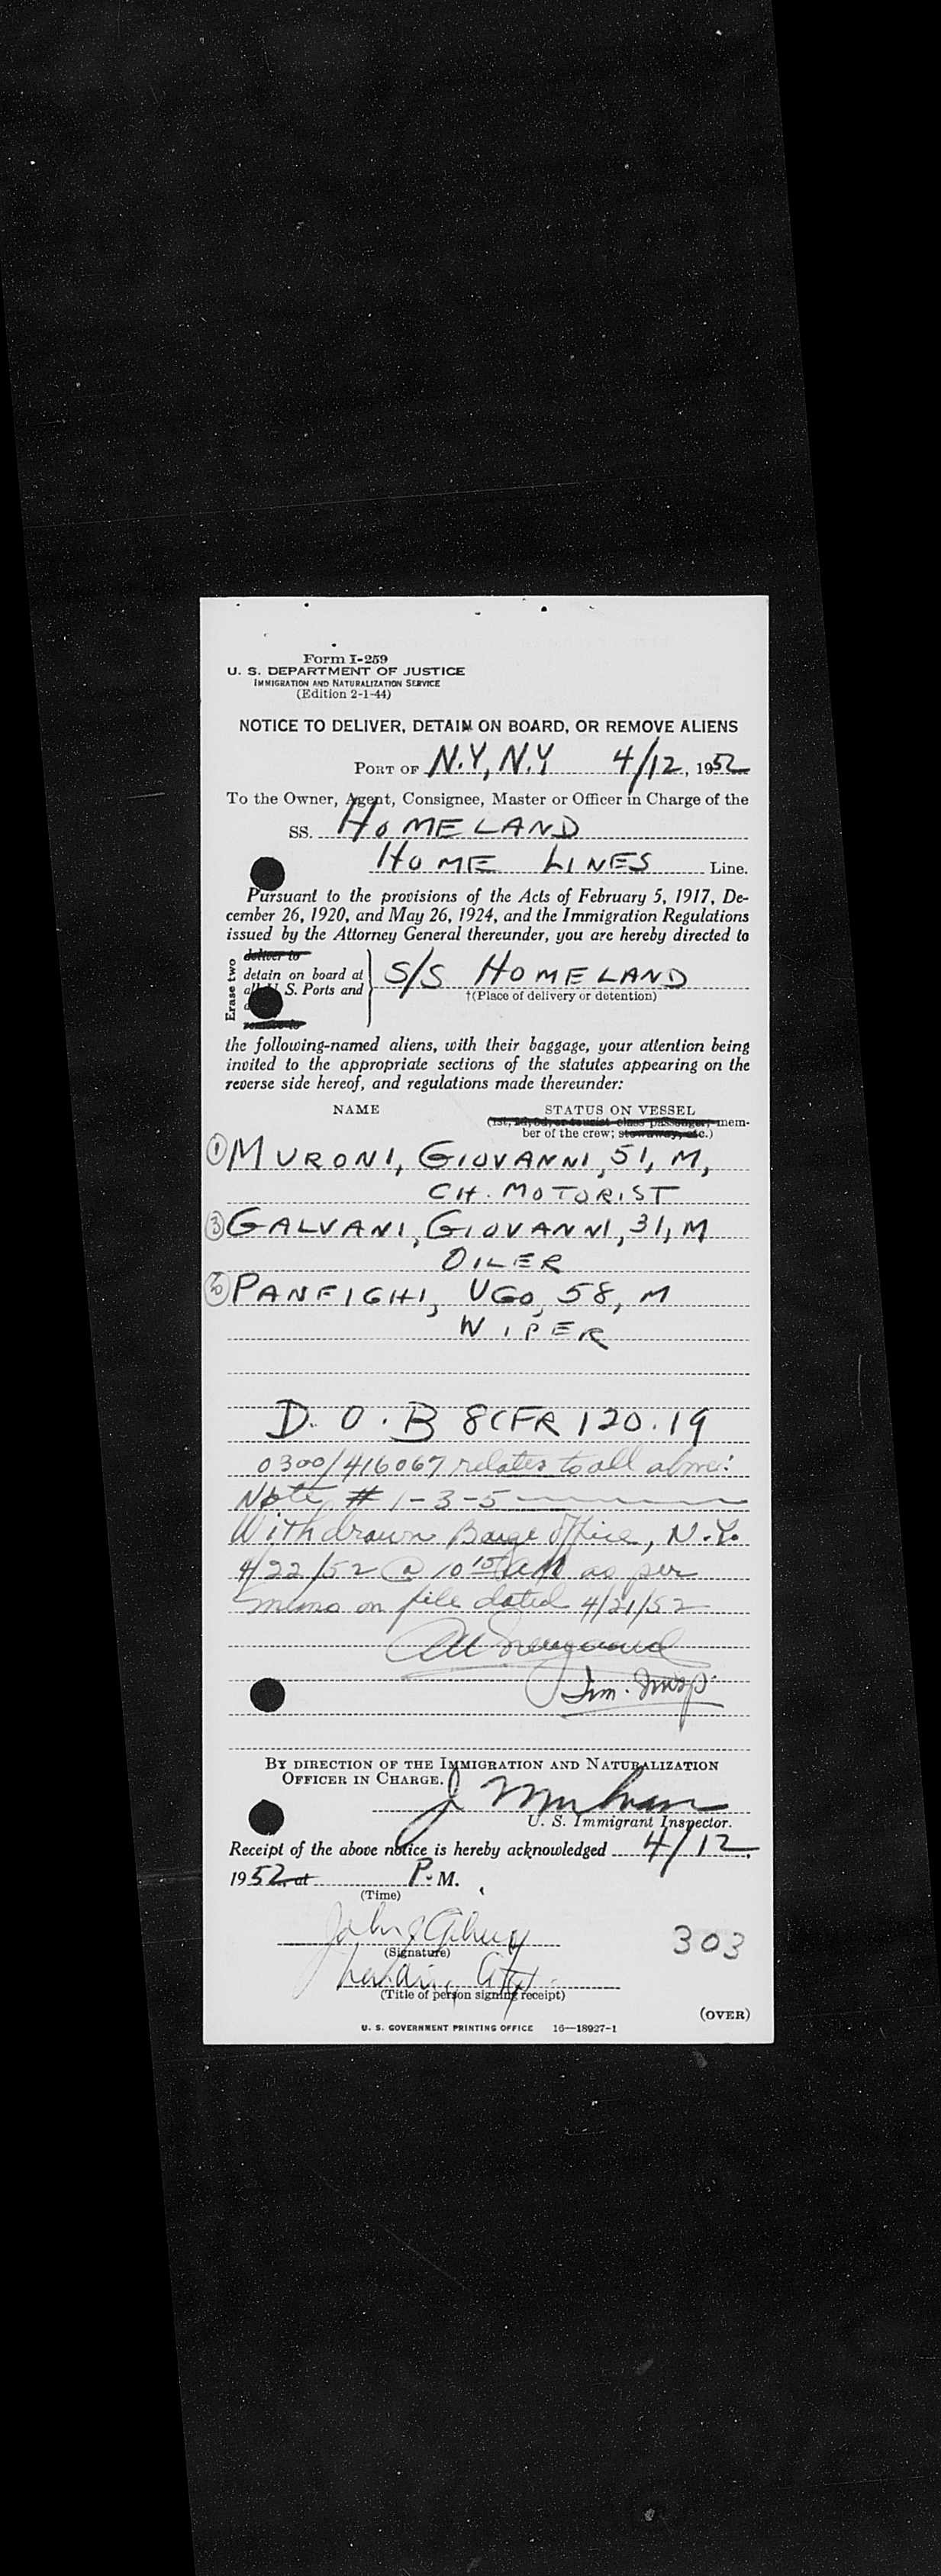 Form I-259
U. S. DEPARTMENT OF JUSTICE
IMMIGRATION AND NATURALIZATION SERVICE
(Edition 2-1-44)
NOTICE TO DELIVER, DETAIN ON BOARD, OR REMOVE ALIENS
PORT OF N.Y, N.Y 4/12, 1952
To the Owner, Agent, Consignee, Master or Officer in Charge of the
SS. HOMELAND
HOME LINES Line.
Pursuant to the provisions of the Acts of February 5, 1917, De-
cember 26, 1920, and May 26, 1924, and the Immigration Regulations
issued by the Attorney General thereunder, you are hereby directed to
Erase two
deliver to
detain on board at
all U. S. Ports and
remove to
S/S HOMELAND
†(Place of delivery or detention)
the following-named aliens, with their baggage, your attention being
invited to the appropriate sections of the statutes appearing on the
reverse side hereof, and regulations made thereunder:
NAME STATUS ON VESSEL
(1st, 2d, 3d, or tourist class passenger; mem-
ber of the crew; stowaway, etc.)
① MURONI, GIOVANNI, 51, M,
CH. MOTORIST
③ GALVANI, GIOVANNI, 31, M
OILER
⑤ PANFIGHI, UGO, 58, M
WIPER
D. O. B 8CFR 120.19
0300/416067 relates to all above:
Note # 1-3-5
Withdrawn Barge Office, N.Y.
4/22/52 @ 10 15 AM as per
memo on file dated 4/21/52
Imm. Insp.
BY DIRECTION OF THE IMMIGRATION AND NATURALIZATION
OFFICER IN CHARGE.
U. S. Immigrant Inspector.
Receipt of the above notice is hereby acknowledged 4/12,
1952, at P. M.
(Time)
John
(Signature)
303
(Title of person signing receipt)
(OVER)
U. S. GOVERNMENT PRINTING OFFICE 16—18927-1